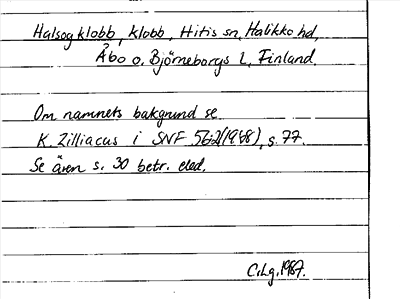 Halsogklobb, klobb, Hitis sn, Halikko hd,
Åbo o. Björneborgs l, Finland.
Om namnets bakgrund se
K. Zilliacus i SNF 56:2(1968), s. 77.
Se även s. 30 betr. eled.
C.Lg. 1987.